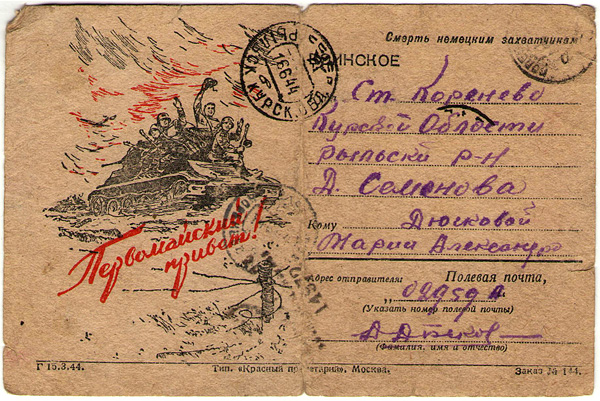 Смерть немецким захватчикам
ИНСКОЕ
Ст. Коренево
Курской Области
рыльский р-н
Д. Семенова
Кому Дюковой
Марии Александро
Первомайский
привет!
Адрес отправителя: Полевая почта,
(Указать номер полевой почты)
(Фамилия, имя и отчество)
Г 15.3.44.
Тип. «Красный пролетарий», Москва.
Заказ № 144.
РЫЛЬСК
КУРСК. ОБЛ.